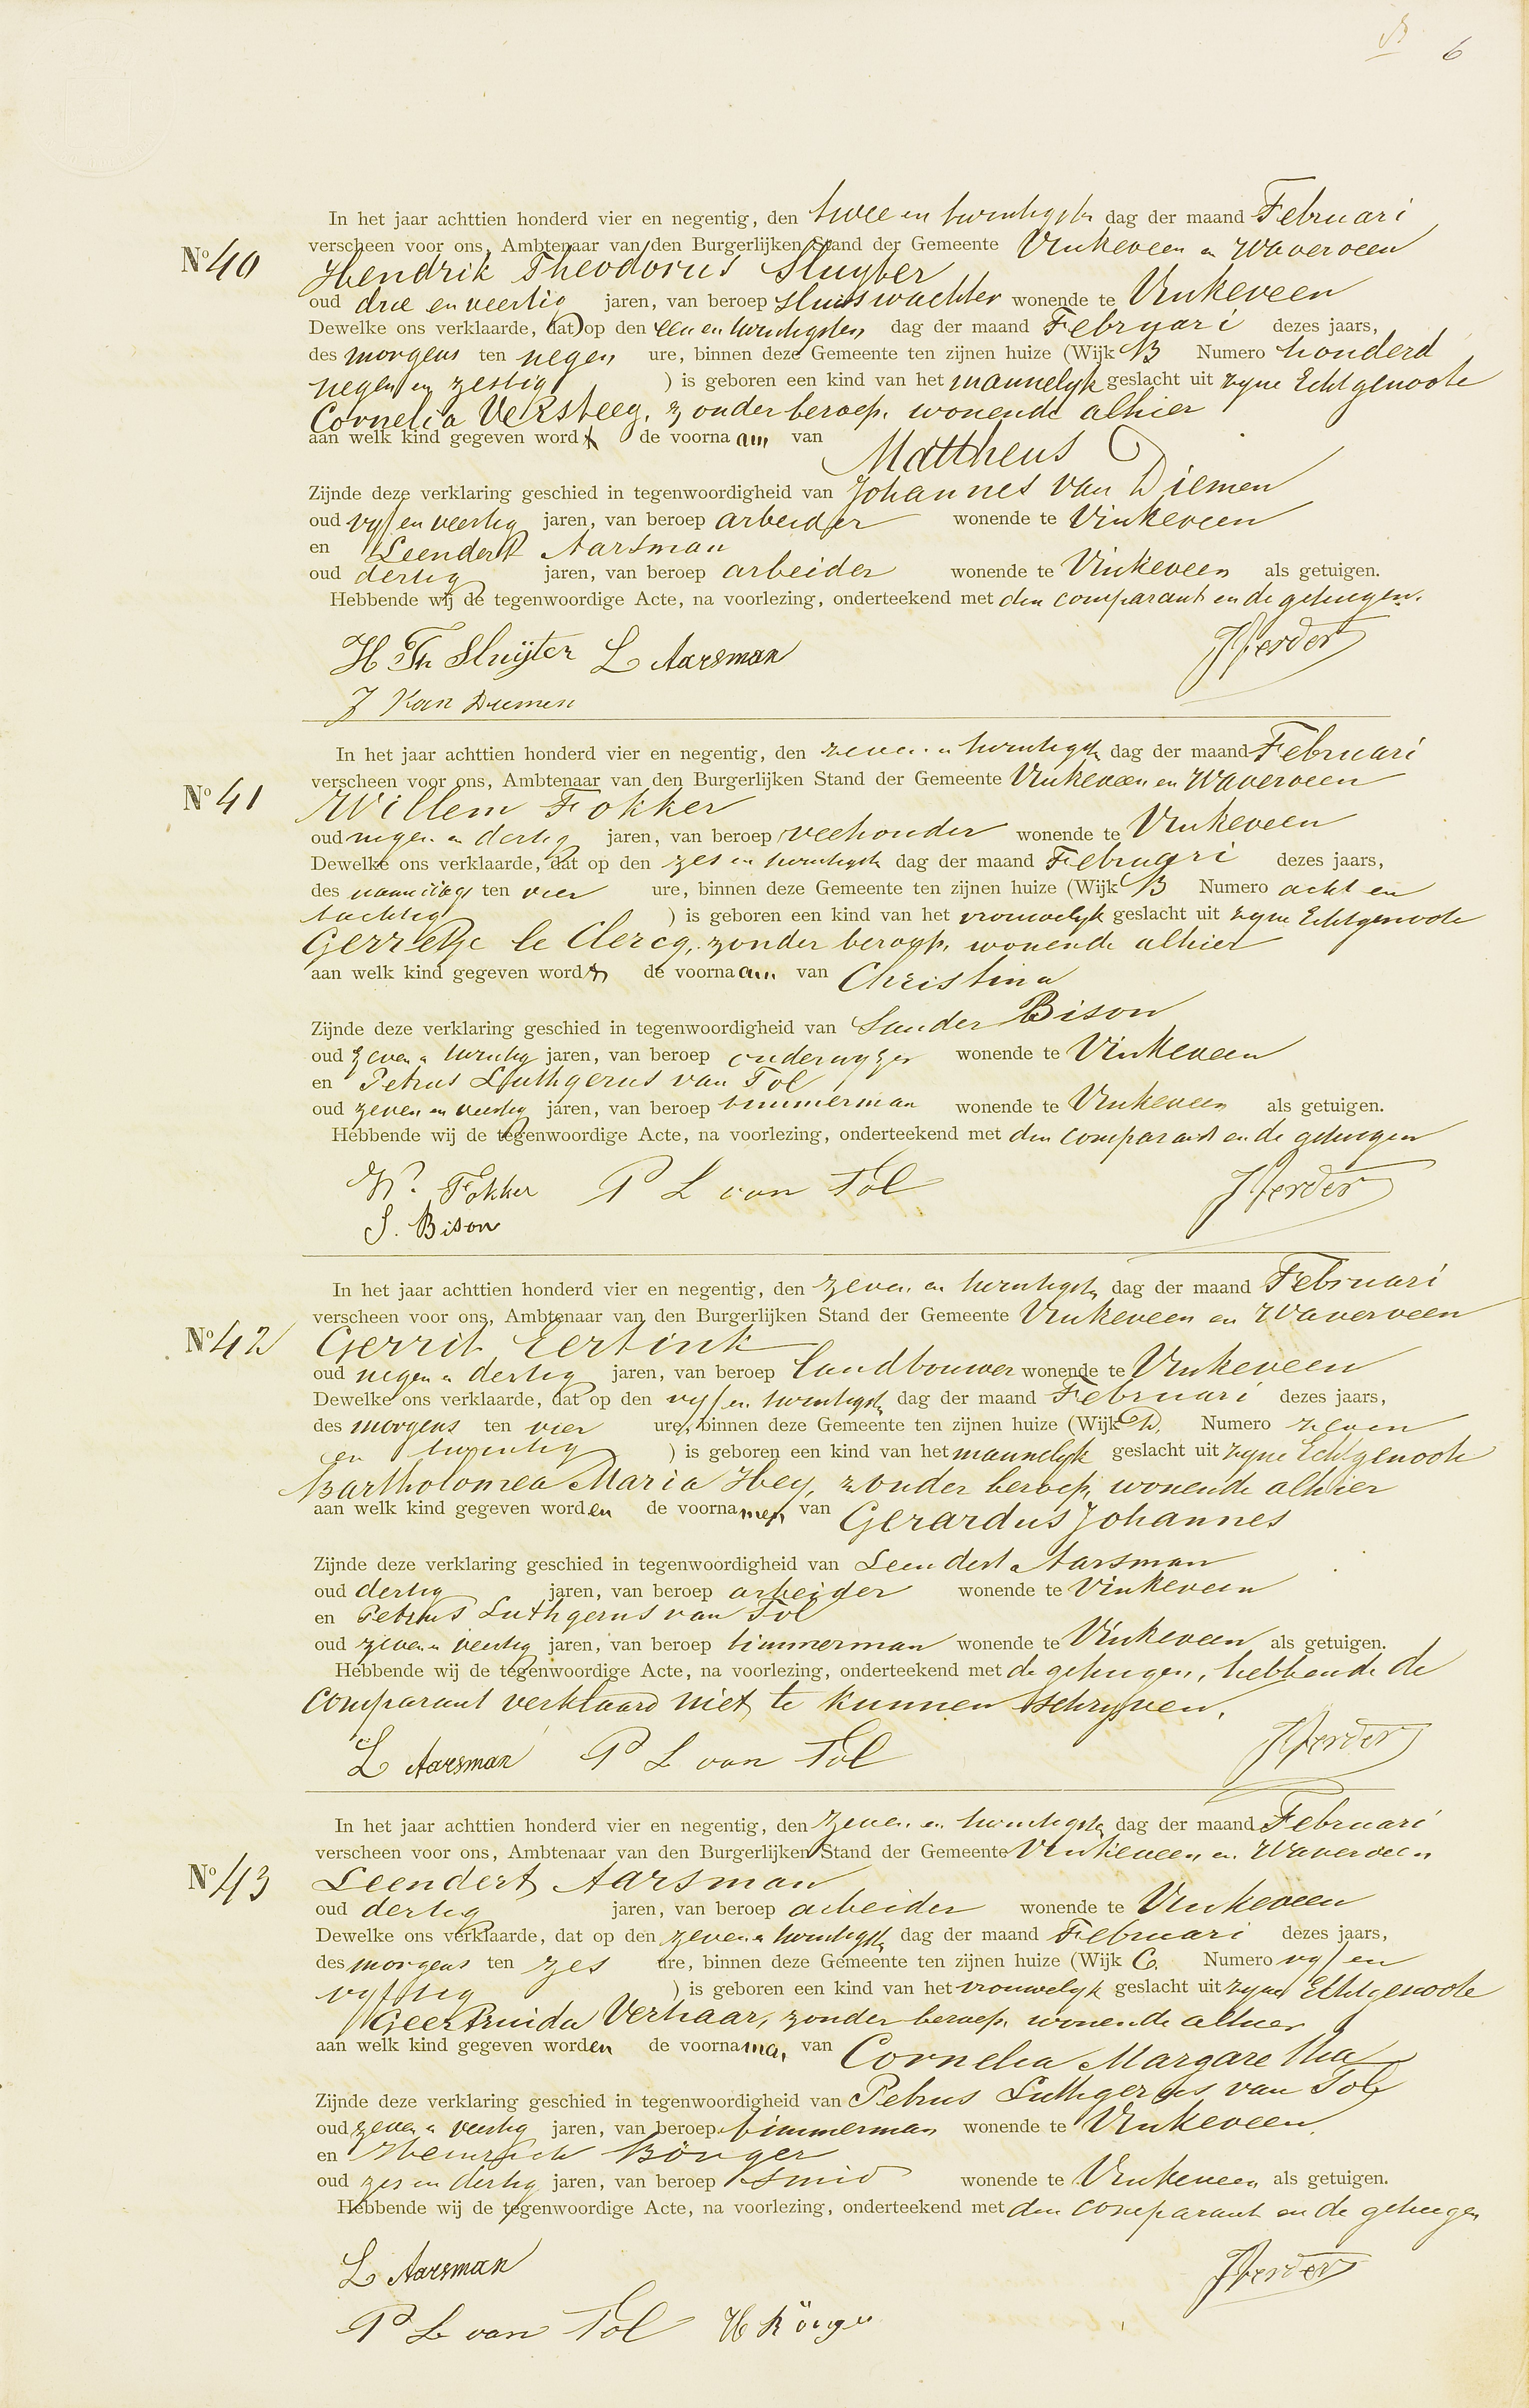 6
In het jaar achttien honderd vier en negentig, den twee en twintigste dag der maand Februari
verscheen voor ons, Ambtenaar van den Burgerlijken Stand der Gemeente Vinkeveen en Waverveen
No 40 Hendrik Theodorus Sluyter
oud drie en veertig jaren, van beroep sluiswachter wonende te Vinkeveen
Dewelke ons verklaarde, dat op den een en twintigsten dag der maand Februari dezes jaars,
des morgens ten negen ure, binnen deze Gemeente ten zijnen huize (Wijk B Numero honderd
negen en zestig ) is geboren een kind van het mannelyk geslacht uit zyne Echtgenoote
Cornelia Versteeg, zonder beroep, wonende alhier
aan welk kind gegeven wordt de voornaam van Mattheus
Zijnde deze verklaring geschied in tegenwoordigheid van Johannes van Diemen
oud vyf en veertig jaren, van beroep arbeider wonende te Vinkeveen
en Leendert Aarsman
oud dertig jaren, van beroep arbeider wonende te Vinkeveen als getuigen.
Hebbende wij de tegenwoordige Acte, na voorlezing, onderteekend met den comparant en de getuigen.
H Th Sluÿter L Aarsman
J Van Diemen
In het jaar achttien honderd vier en negentig, den zeven en twintigste dag der maand Februari
verscheen voor ons, Ambtenaar van den Burgerlijken Stand der Gemeente Vinkeveen en Waverveen
No 41 Willem Fokker
oud negen en dertig jaren, van beroep veehouder wonende te Vinkeveen
Dewelke ons verklaarde, dat op den zes en twintigste dag der maand Februari dezes jaars,
des namiddags ten vier ure, binnen deze Gemeente ten zijnen huize (Wijk B Numero acht en
tachtig ) is geboren een kind van het vrouwelyk geslacht uit zyne Echtgenoote
Gerretje le Clercq, zonder beroep, wonende alhier
aan welk kind gegeven wordt de voornaam van Christina
Zijnde deze verklaring geschied in tegenwoordigheid van Sander Bison
oud zeven en twintig jaren, van beroep onderwyzer wonende te Vinkeveen
en Petrus Luthgerus van Tol
oud zeven en veertig jaren, van beroep timmerman wonende te Vinkeveen als getuigen.
Hebbende wij de tegenwoordige Acte, na voorlezing, onderteekend met den comparant en de getuigen
W. Fokker P L van Tol
S. Bison
In het jaar achttien honderd vier en negentig, den zeven en twintigste dag der maand Februari
verscheen voor ons, Ambtenaar van den Burgerlijken Stand der Gemeente Vinkeveen en Waverveen
No 42 Gerrit Eertink
oud negen en dertig jaren, van beroep landbouwer wonende te Vinkeveen
Dewelke ons verklaarde, dat op den vyf en twintigste dag der maand Februari dezes jaars,
des morgens ten vier ure, binnen deze Gemeente ten zijnen huize (Wijk D. Numero zeven
en twintig ) is geboren een kind van het mannelyk geslacht uit zyne Echtgenoote
Bartholomea Maria Hey, zonder beroep, wonende alhier
aan welk kind gegeven worden de voornamen van Gerardus Johannes
Zijnde deze verklaring geschied in tegenwoordigheid van Leendert Aarsman
oud dertig jaren, van beroep arbeider wonende te Vinkeveen
en Petrus Luthgerus van Tol
oud zeven en veertig jaren, van beroep timmerman wonende te Vinkeveen als getuigen.
Hebbende wij de tegenwoordige Acte, na voorlezing, onderteekend met de getuigen, hebbende de
comparant verklaard niet te kunnen schryven.
L Aarsman P L van Tol
In het jaar achttien honderd vier en negentig, den zeven en twintigste dag der maand Februari
verscheen voor ons, Ambtenaar van den Burgerlijken Stand der Gemeente Vinkeveen en Waverveen
No 43 Leendert Aarsman
oud dertig jaren, van beroep arbeider wonende te Vinkeveen
Dewelke ons verklaarde, dat op den zeven en twintigste dag der maand Februari dezes jaars,
des morgens ten zes ure, binnen deze Gemeente ten zijnen huize (Wijk C. Numero vyf en
vyftig ) is geboren een kind van het vrouwelyk geslacht uit zyne Echtgenoote
Geertruida Verhaar, zonder beroep, wonende alhier
aan welk kind gegeven worden de voornamen van Cornelia Margaretha
Zijnde deze verklaring geschied in tegenwoordigheid van Petrus Luthgerus van Tol
oud zeven en veertig jaren, van beroep timmerman wonende te Vinkeveen,
en Heinrich Bönger
oud zes en dertig jaren, van beroep smid wonende te Vinkeveen als getuigen.
Hebbende wij de tegenwoordige Acte, na voorlezing, onderteekend met den comparant en de getuigen
L Aarsman
P L van Tol H Bönger